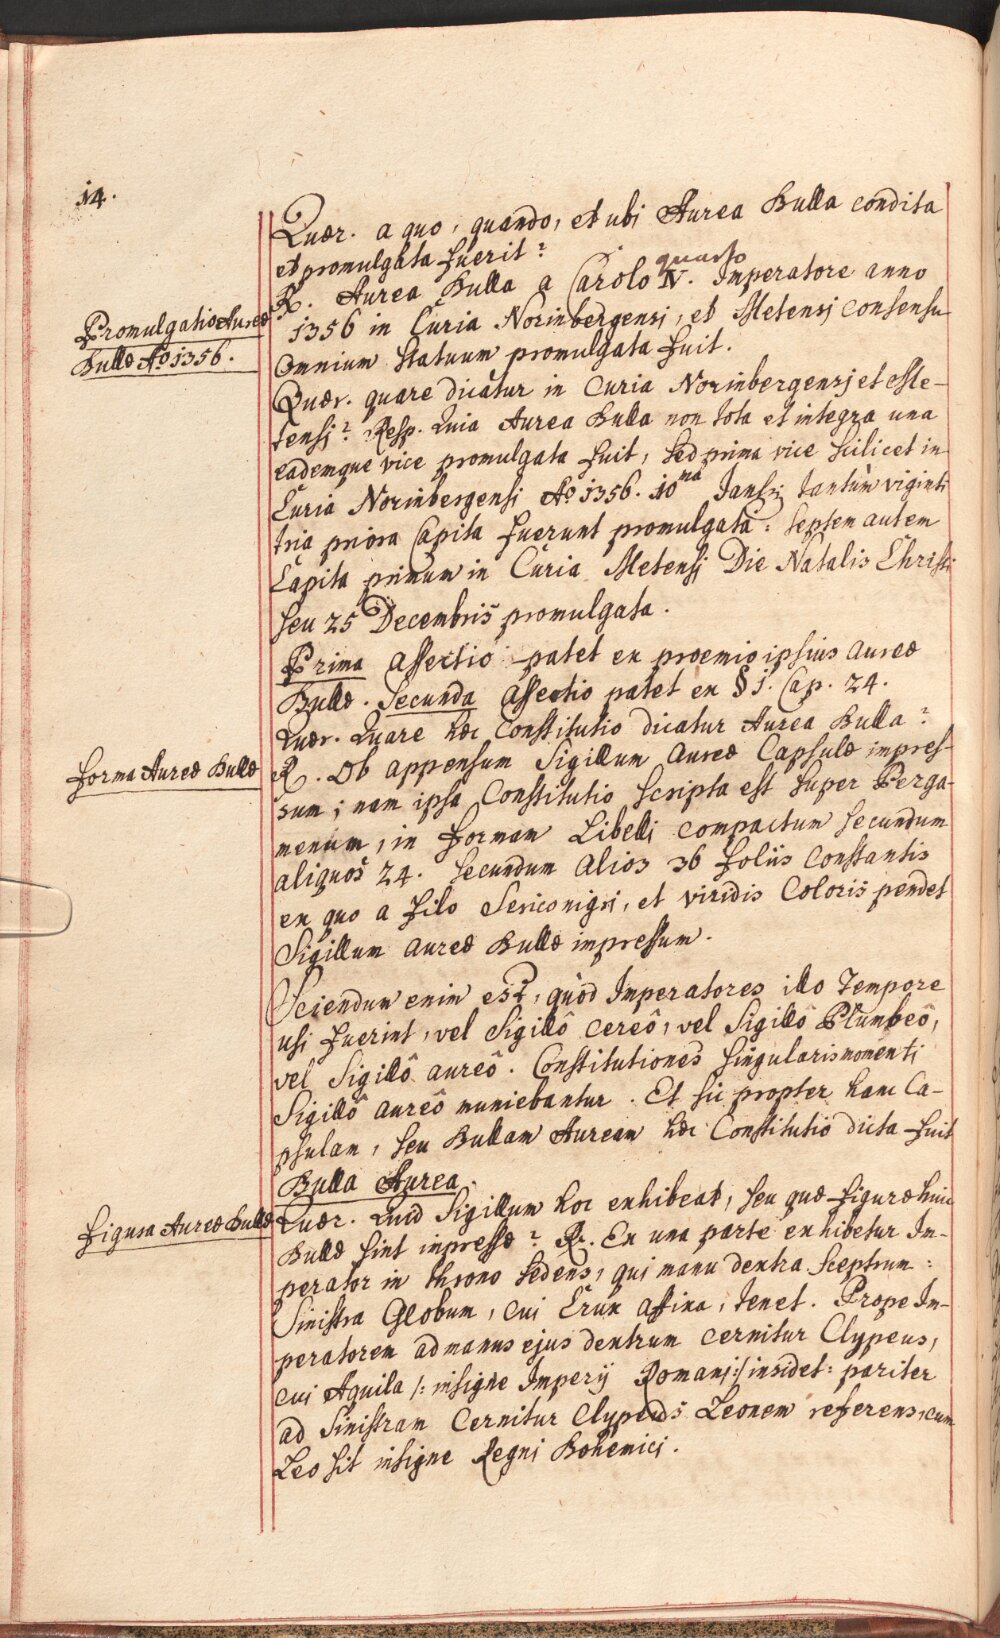 14.
Quær. a quo, quando, et ubi Aurea Bulla condita
et promulgata fuerit?
quarto
R. Aurea Bulla a Carolo IV. Imperatore anno
Promulgatio Aureæ
Bullæ Aº 1356.
1356 in Curia Norinbergensi, et Metensi consensu
omnium statuum promulgata fuit.
Quær. quare dicatur in Curia Norinbergensi et Me-
tensi? Resp. Quia Aurea Bulla non tota et integra una
eademque vice promulgata fuit, sed prima vice scilicet in
Curia Norinbergensi Aº 1356. 10ma tantùm viginti
tria priora Capita fuerunt promulgata: septem autem
Capita primum in Curia Metensi Die Natalis Christi
seu 25 Decembris promulgata.
Prima assertio patet ex proemio ipsius aureæ
Bullæ. Secunda assertio patet ex § 1. Cap. 24.
Quær. Quare hæc Constitutio dicatur Aurea Bulla?
Forma Aureæ Bullæ
R. Ob appensum Sigillum aureæ Capsulæ impres-
sum; nam ipsa Constitutio scripta est super Perga-
menum, in formam Libelli compactum secundum
aliquos 24. secundum alios 36 foliis constantis
ex quo a filo Serico nigri, et viridis Coloris pendet
Sigillum aureæ Bullæ impressum.
Sciendum enim est, quòd Imperatores illo Tempore
usi fuerint, vel Sigillô cereô, vel Sigillô Plumbeô,
vel Sigillô aureô. Constitutiones singularis momenti
Sigillô aureô muniebantur. Et sic propter hanc Ca-
psulam, seu Bullam Auream hæc Constitutio dicta fuit
Bulla Aurea.
Figura Aureæ Bullæ
Quær. Quid Sigillum hoc exhibeat, seu quæ figuræ huic
Bullæ sint inpressæ? R. Ex una parte exhibetur Im-
perator in throno sedens, qui manu dextra sceptrum:
Sinistra Globum, cui Crux affixa, tenet. Prope Im-
peratorem ad manus ejus dextrum cernitur Clypeus,
cui Aquila /: insigne Imperij Romani :/ insidet: pariter
ad Sinistram Cernitur Clypeus Leonem referens, cum
Leo sit insigne Regni Bohemici.